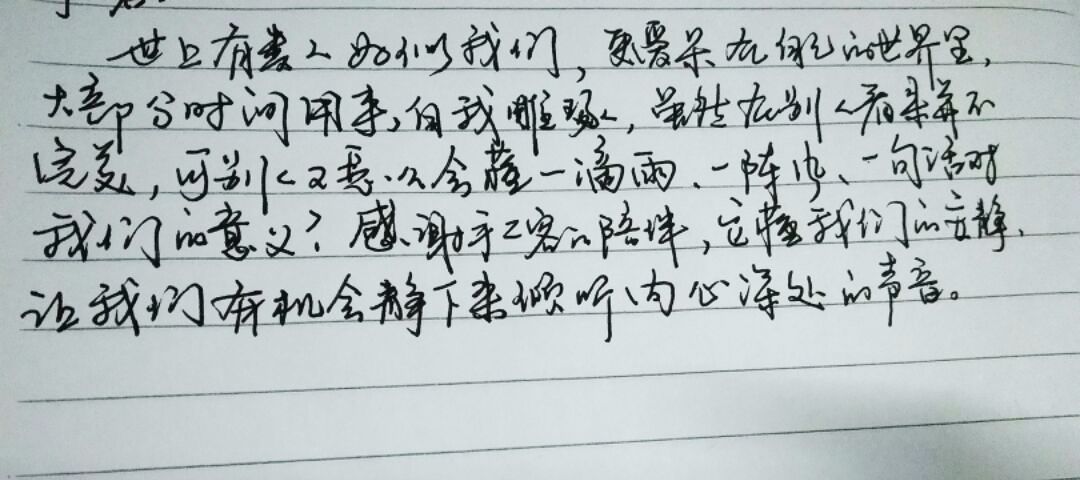 世上有类人如你似我们，更爱呆在自己的世界里，
大部分时间用来，自我雕琢，虽然在别人看来并不
完美，可别人又怎么会懂一滴雨、一阵风、一句话对
我们的意义？感谢手工客的陪伴，它懂我们的安静，
让我们有机会静下来倾听内心深处的声音。